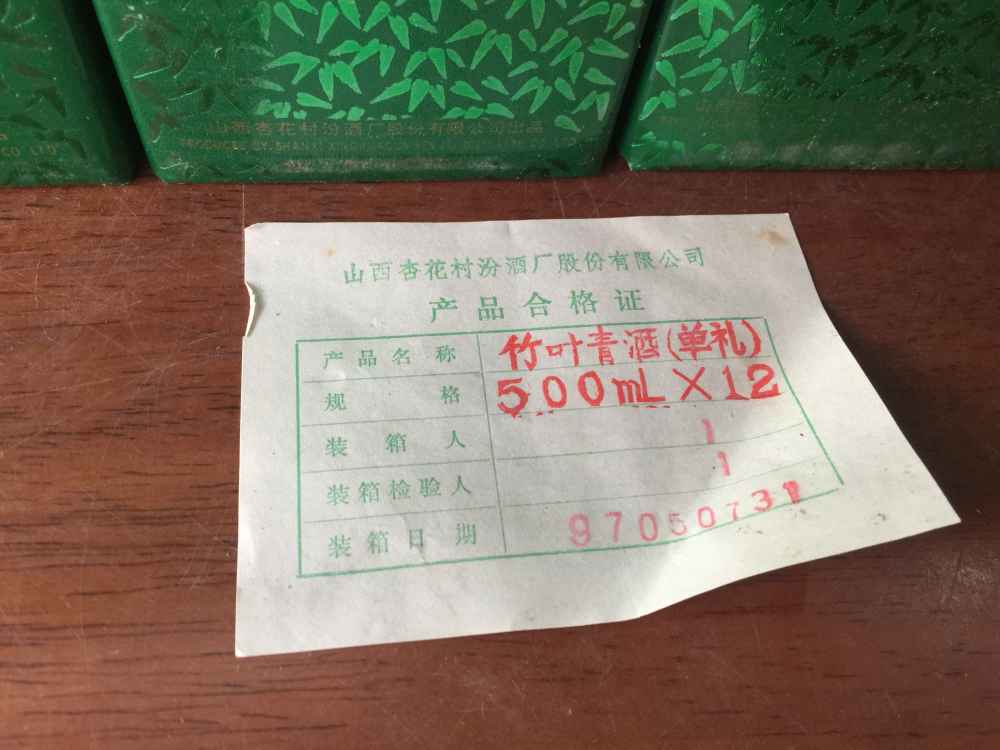 山西杏花村汾酒厂股份有限公司出品
CO LTD
山西杏花村汾酒厂股份有限公司
产品合格证
产品名称 竹叶青酒(单礼)
规格 500mL×12
装箱人 1
装箱检验人 1
装箱日期 97050731